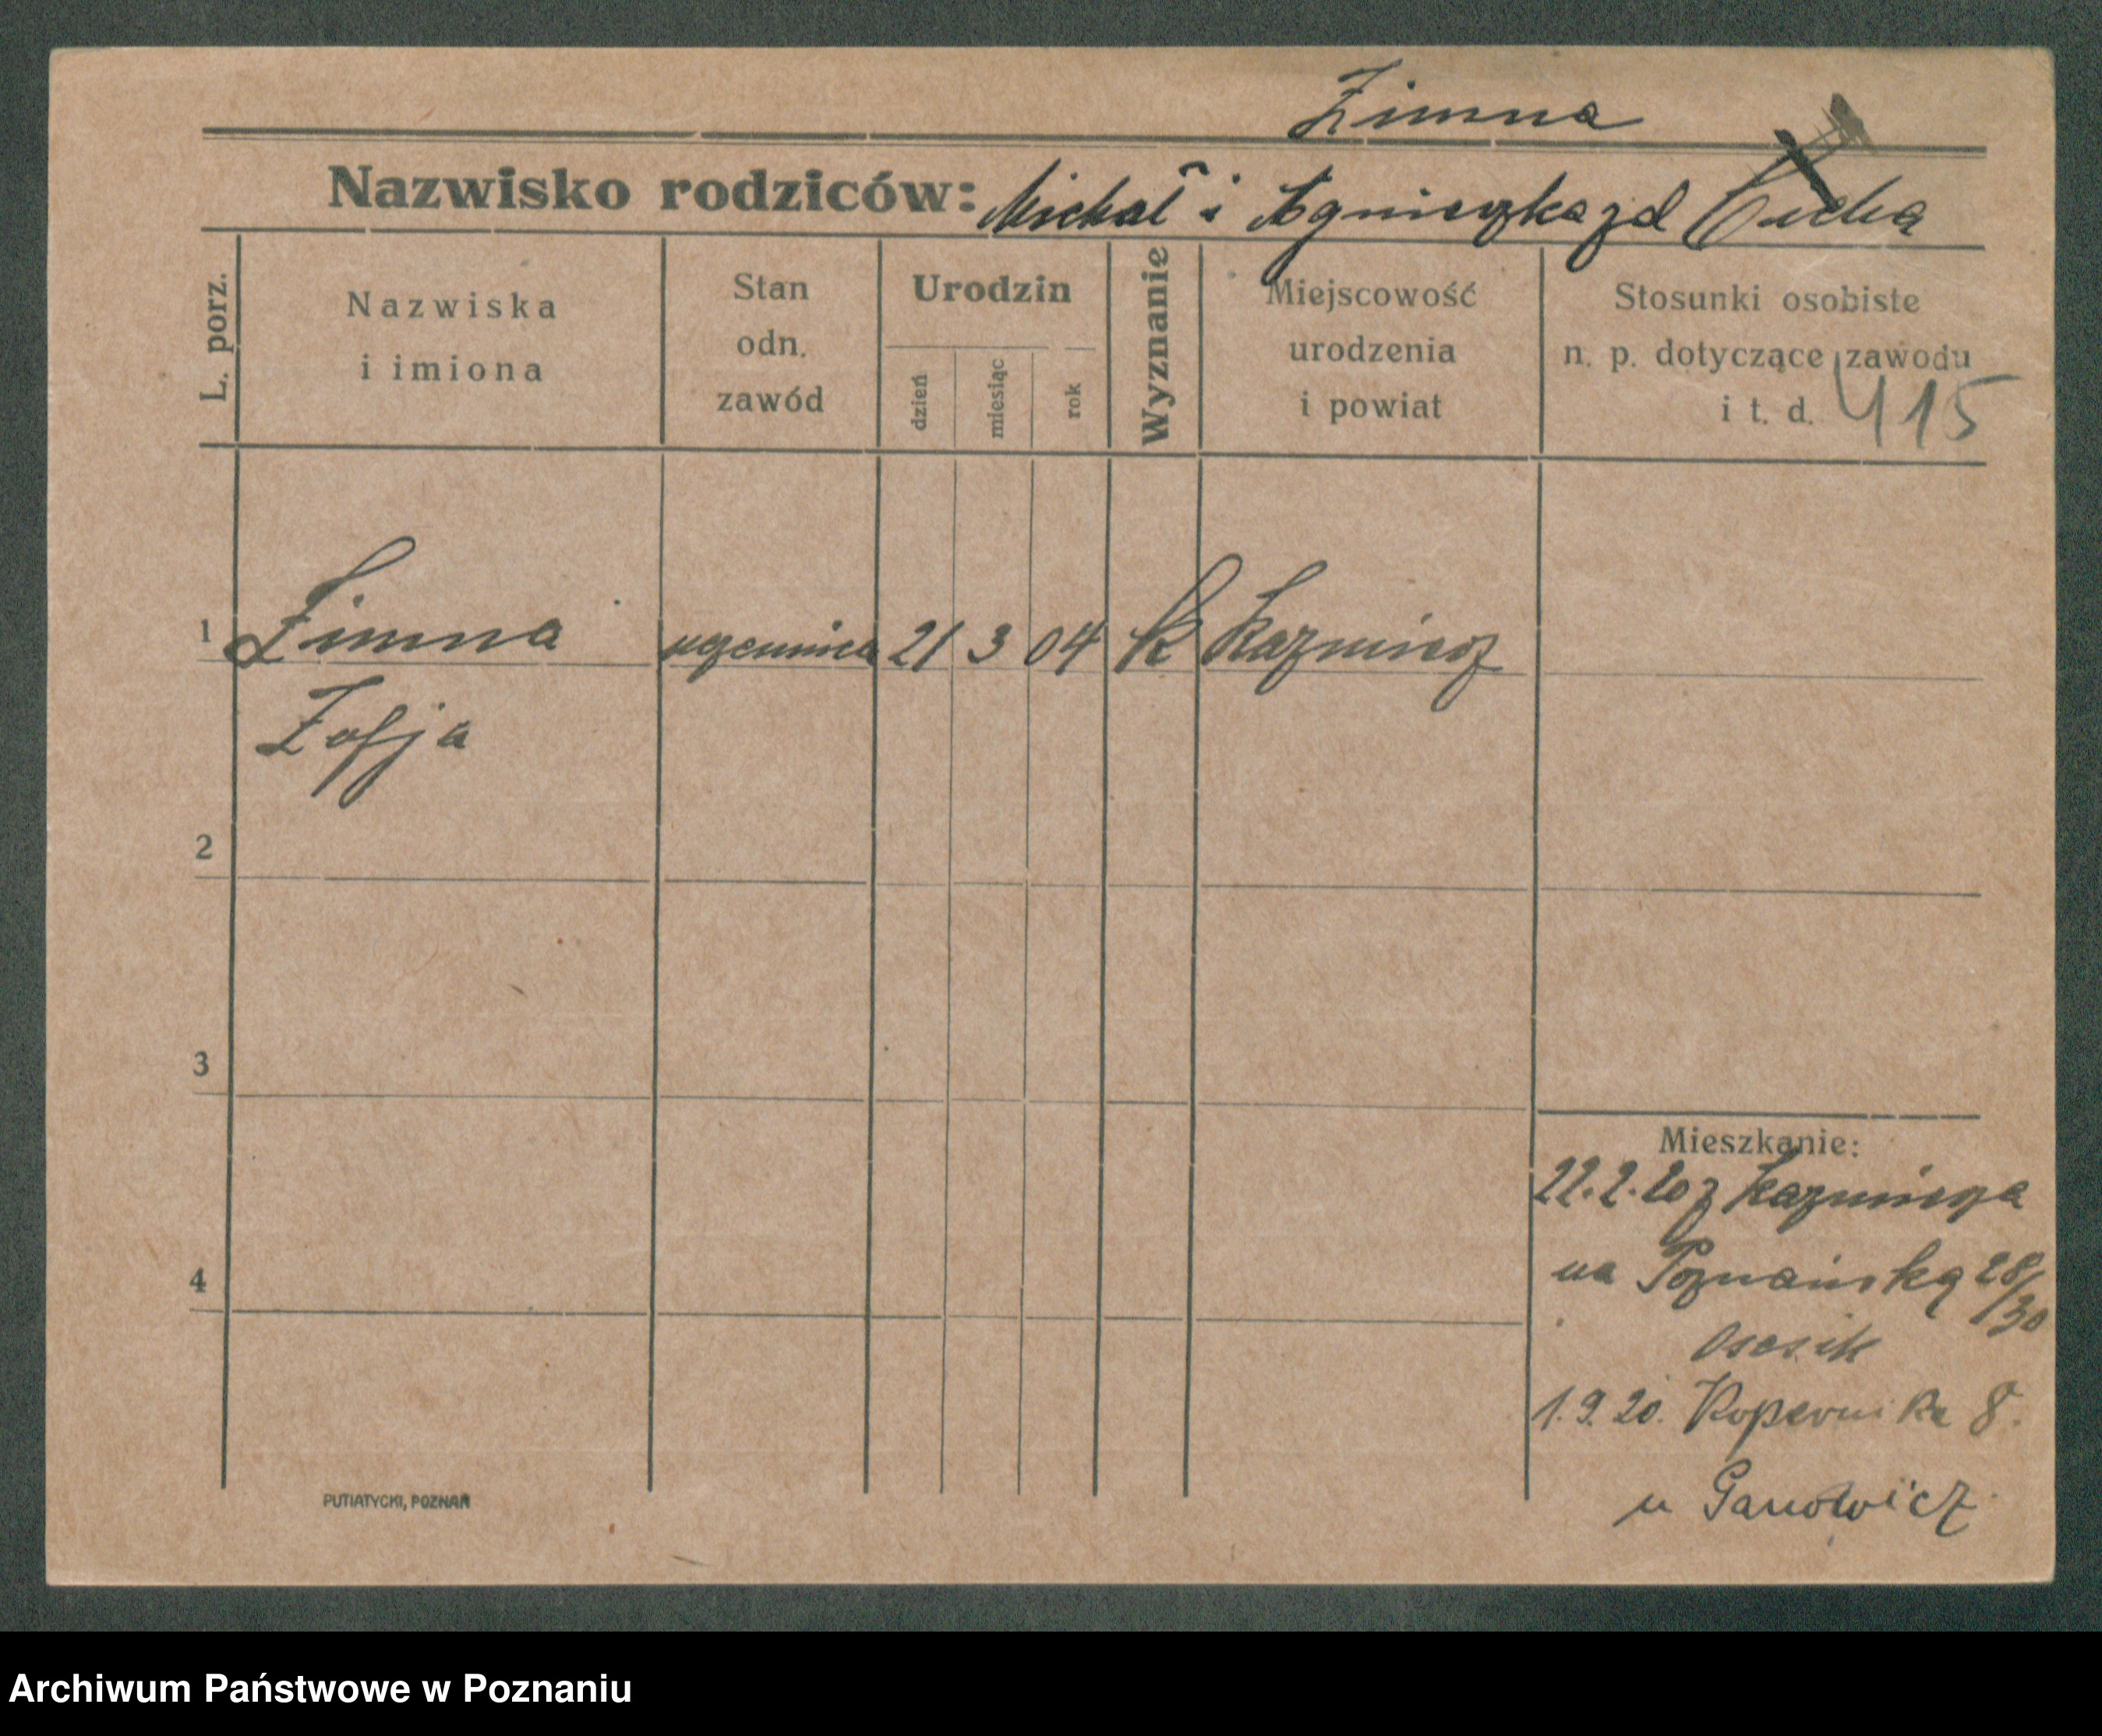 Zimna
Nazwisko rodziców: Michał i Agnieszka zd Cicha
L. porz.
Nazwiska
i imiona
Stan
odn.
zawód
Urodzin
dzień
miesiąc
rok
Wyznanie
Miejscowość
urodzenia
i powiat
Stosunki osobiste
n. p. dotyczące zawodu
i t. d.
415
1 Zimna uczennica 21 3 04 k Kazmierz
Zofja
2
3
4
Mieszkanie:
22.2.20 z Kazmierza
na Poznańską 28/30
1.9.20. Kopernika 8.
u Ganowicz
PUTIATYCKI, POZNAŃ
Archiwum Państwowe w Poznaniu